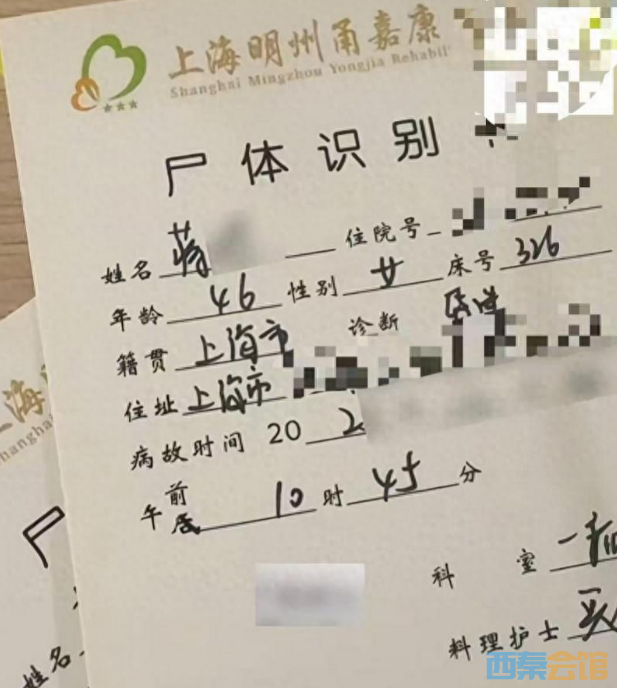 上海明州甬嘉康
Shanghai Mingzhou Yongjia Rehabil
尸体识别
姓名 蒋 住院号
年龄 46 性别 女 床号 326
籍贯 上海市 诊断
住址 上海市
病故时间 20 2
午 前 后 10 时 45 分
科室 一
料理护士
上海
Shanghai
尸
姓名
西秦会馆